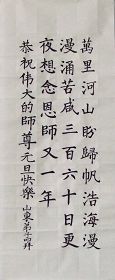 萬里河山盼歸帆浩海漫
漫涌苦咸三百六十日更
夜想念恩師又一年
恭祝伟大的師尊元旦快樂山東弟子高拜